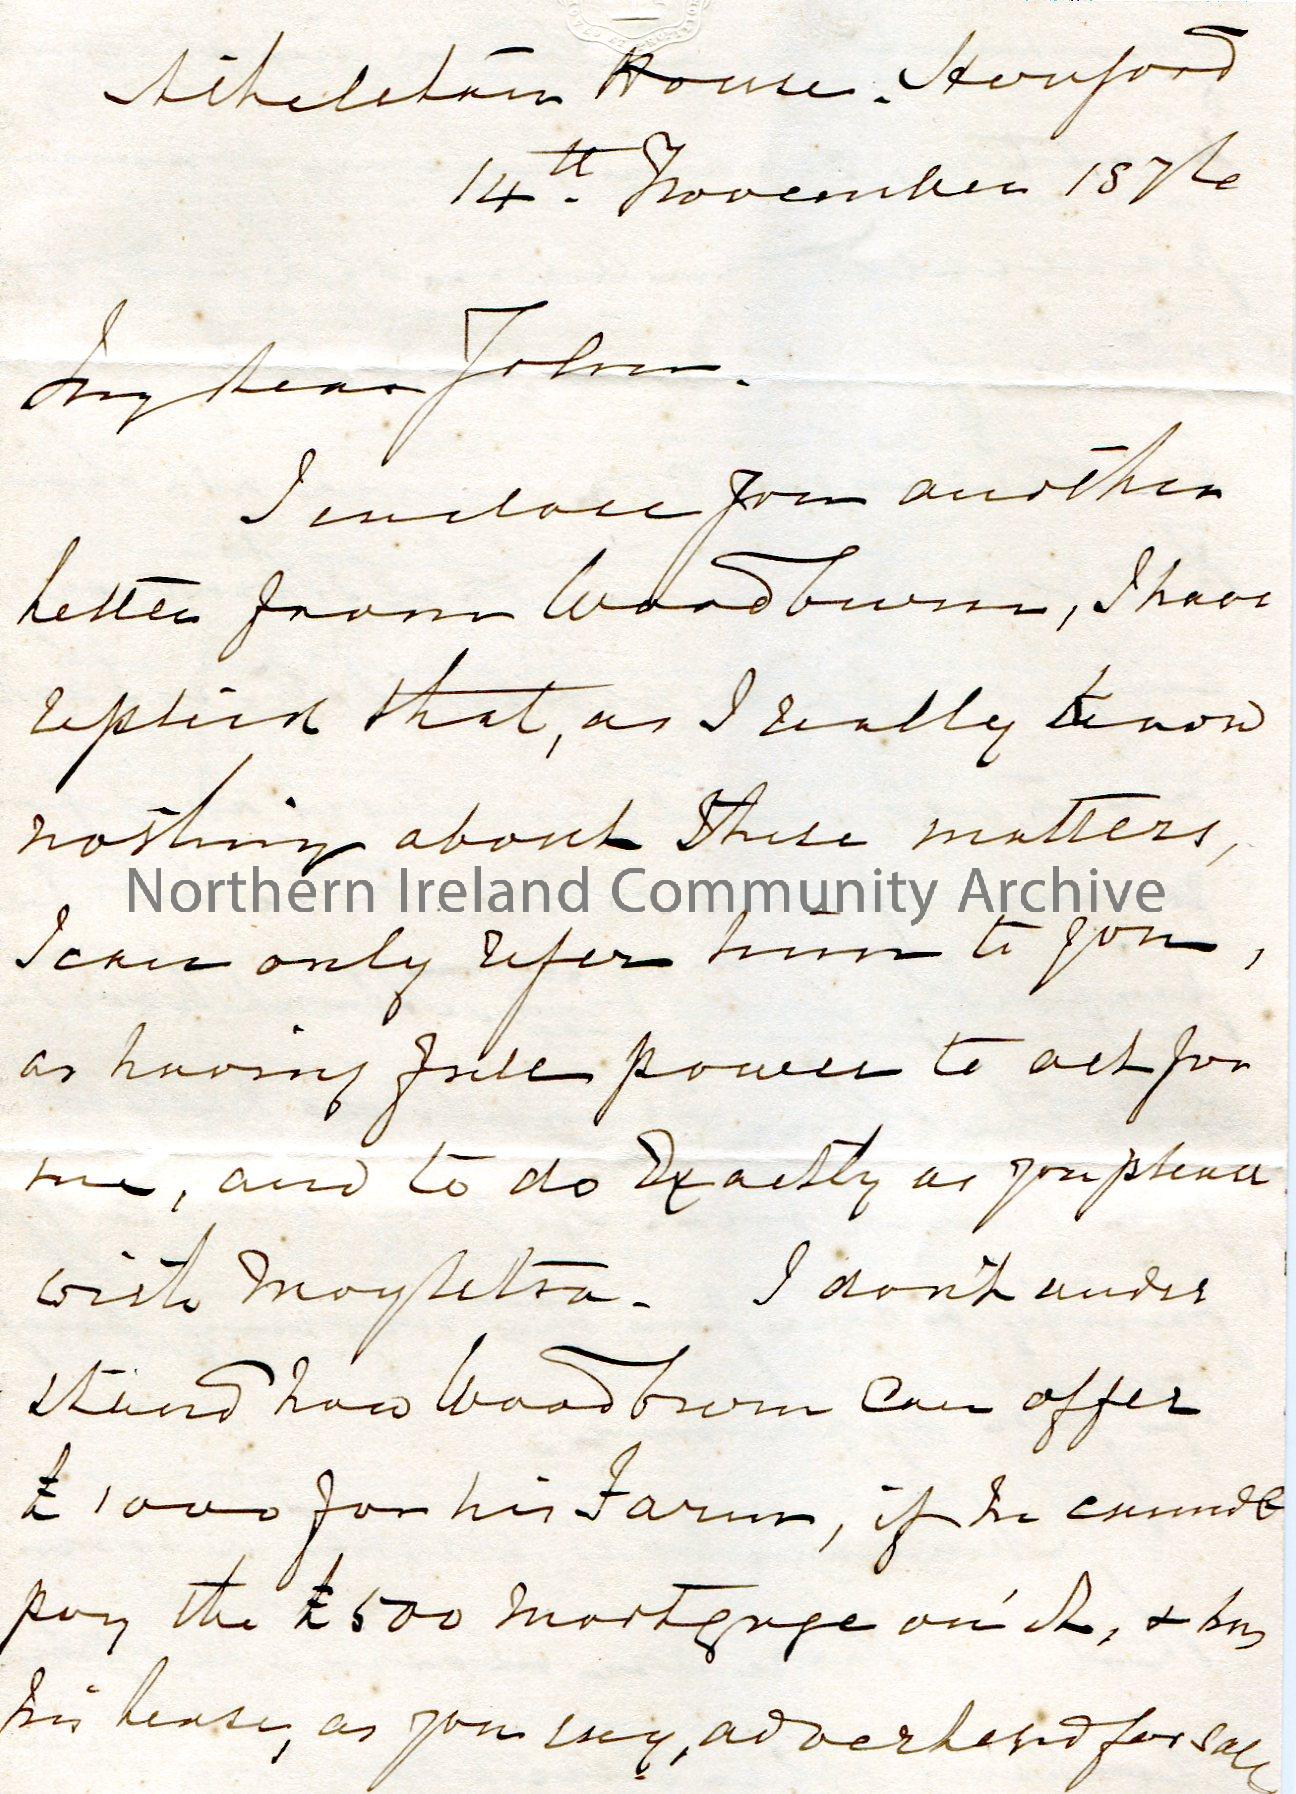 Athelstan House. Hereford
14th. November 1876
My dear John.
I enclose you another
letter from Woodburn, I have
replied that, as I really know
nothing about these matters,
Northern Ireland Community Archive
I can only refer him to you,
as having full power to act for
me, and to do Exactly as you please
with Moyletra. I don't under
stand how Woodburn can offer
£1000 for his Farm, if he cannot
pay the £500 mortgage on it, & has
his lease, as you say, advertised for sale